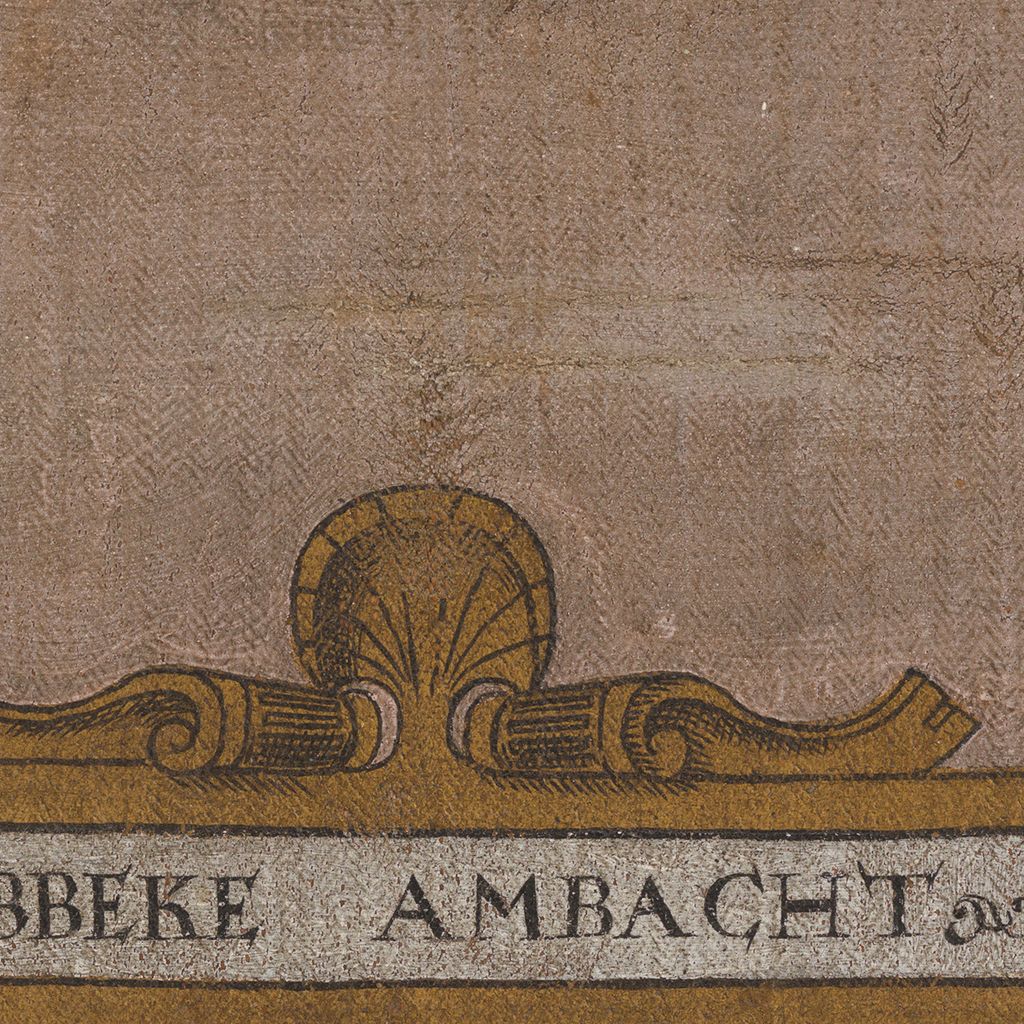 BBEKE AMBACHT